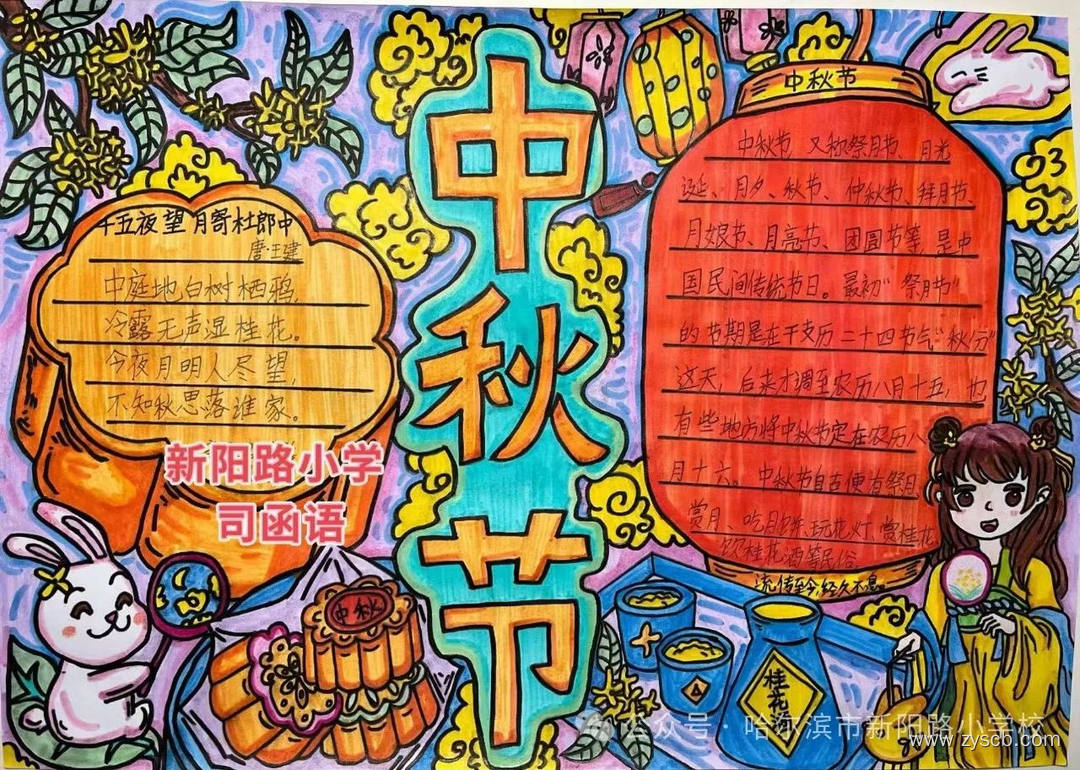 中秋节
十五夜望月寄杜郎中
唐·王建
中庭地白树栖鸦,
冷露无声湿桂花。
今夜月明人尽望,
不知秋思落谁家。
新阳路小学
司函语
中秋
中秋节
中秋节 又称祭月节、月光
诞、月夕、秋节、仲秋节、拜月节
月娘节、月亮节、团圆节等 是中
国民间传统节日。最初“祭月节”
的节期是在干支历二十四节气“秋分”
这天,后来才调至农历八月十五,也
有些地方将中秋节定在农历八
月十六。中秋节自古便有祭月
赏月、吃月饼、玩花灯、赏桂花、
饮桂花酒等民俗
流传至今,经久不息。
桂花
公众号·哈尔滨市新阳路小学校
www.zyscb.com